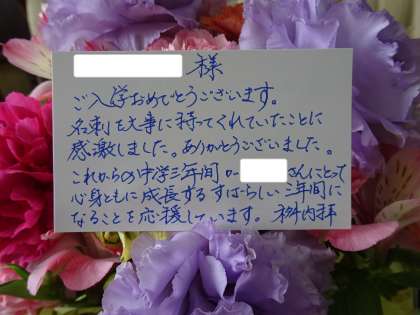 様
ご入学おめでとうございます。
名刺を大事に持ってくれていたことに
感激しました。ありがとうございました。
これからの中学三年間が さんにとって
心身ともに成長するすばらしい三年間に
なることを応援しています。 内拝